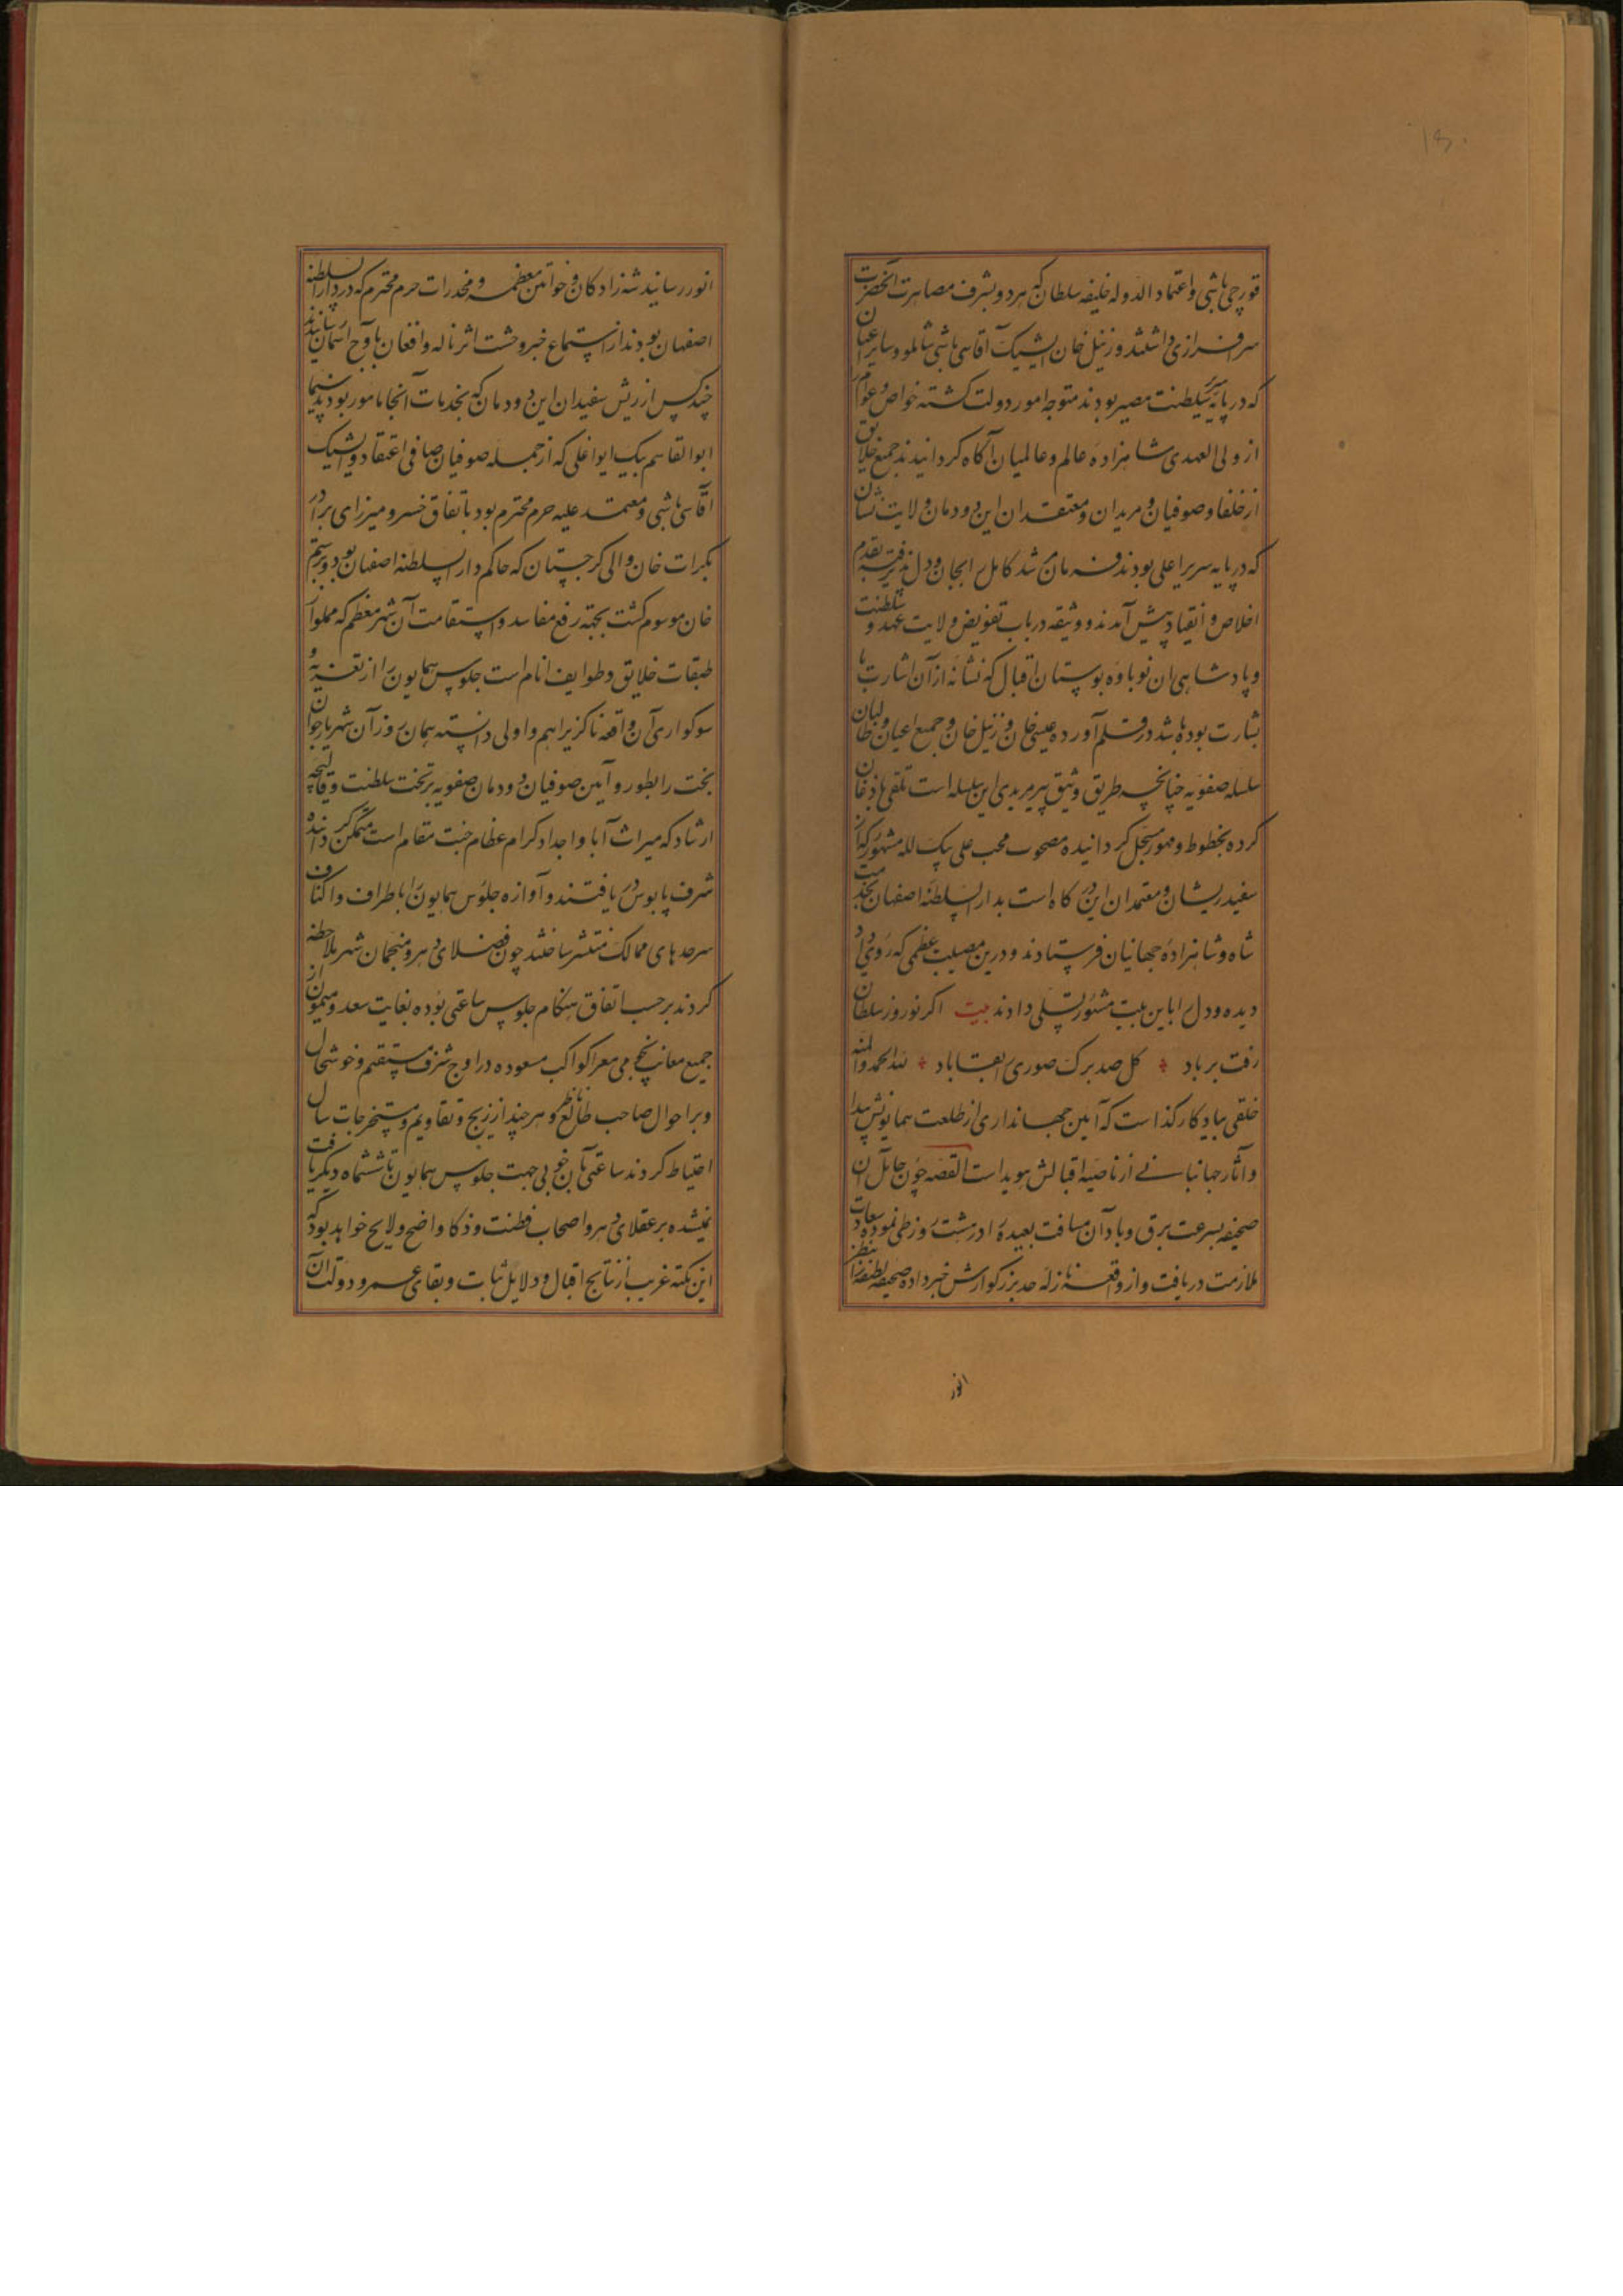 ۱۳۰
قورچی باشی و اعتماد الدوله خلیفه سلطان که هر دو بشرف مصاهرت آنحضرت
سرافرازی داشتند و زینل خان ایشیک آقاسی باشی شاملو و سایر اعیان
که در پایه سریر سلطنت مصیر بودند متوجه امور دولت کشته خواص و عوام را
از ولی العهدی شاهزاده عالم و عالمیان آکاه کردانیدند جمیع خلایق
از خلفا و صوفیان و مریدان و معتقدان این دودمان ولایت نشان
که در پایه سریر اعلی بودند فرمان مرشد کامل را بجان و دل پذیرفته بقدم
اخلاص و انقیاد پیش آمدند و وثیقه در باب تفویض ولایت عهد و سلطنت
و پادشاهی ان نوباوه بوستان اقبال که نشانه از آن اشارت با
بشارت بوده باشد در قلم آورده عیسی خان و زینل خان و جمیع اعیان و طالبان
سلسله صفویه چنانچه طریق وثیق پیر مریدی این سلسله است تلقی باذعان
کرده بخطوط و مهور مسجل کردانیده مصحوب محب علی بیک لله مشهور که از
سفید ریشان و معتمدان این درکاه است بدار السلطنه اصفهان بخدمت
شاه و شاهزاده جهانیان فرستادند و درین مصیبت عظمی که روی داد
دیده و دل را باین بیت مشهور تسلی دادند بیت اکر نوروز سلطان
رفت بر باد کل صد برک صوری را بقا باد لله الحمد والمنه
خلقی بیادکار کذاشت که آیین جهانداری از طلعت همایونش پیدا
و آثار جهانبانی از ناصیه اقبالش هویداست القصه چون حامل ان
صحیفه بسرعت برق و باد آن مسافت بعیده را در هشت روز طی نموده سعادت
ملازمت دریافت و از واقعه نازله جد بزرکوارش خبر داده صحیفه لطیفه را بنظر
انور
انور رسانید شه زادکان و خواتین معظمه و مخدرات حرم محترم که در دار السلطنه
اصفهان بودند از استماع خبر وحشت اثر ناله و افغان باوج آسمان رسانیدند
چند کس از ریش سفیدان این دودمان که بخدمات آنجا مامور بودند سیما
ابوالقاسم بیک ایواغلی که از جمله صوفیان صافی اعتقاد و ایشیک
آقاسی باشی و معتمد علیه حرم محترم بود باتفاق خسرو میرزای برادر
بکرات خان والی کرجستان که حاکم دار السلطنه اصفهان بود و برستم
خان موسوم کشت بجهة رفع مفاسد و استقامت آن شهر معظم که مملو از
طبقات خلایق و طوایف انام است جلوس همایون را از تعزیه و
سوکواری آن واقعه ناکزیر اهم و اولی دانسته همان روز آن شهریار جوان
بخت را بطور و آیین صوفیان دودمان صفویه بر تخت سلطنت و قالیچه
ارشاد که میراث آبا و اجداد کرام عظام جنت مقام است متمکن کردانیده
شرف پابوس دریافتند و آوازه جلوس همایون را باطراف و اکناف
سرحدهای ممالک منتشر ساختند چون فضلای دهر و منجمان شهر ملاحظه
کردند بر حسب اتفاق هنکام جلوس ساعتی بوده بغایت سعد و میمون از
جمیع معایب نجومی معرا کواکب مسعوده در اوج شرف مستقیم و خوشحال
و بر احوال صاحب طالع ناظر و هر چند از زیج و تقاویم و مستخرجات سال
احتیاط کردند ساعتی بآن خوبی جهت جلوس همایون تا ششماه دیکر یافت
نمیشد و بر عقلای دهر و اصحاب فطنت و ذکا واضح و لایح خواهد بود که
این نکته غریب از نتایج اقبال و دلایل ثبات و بقای عمر و دولت آن